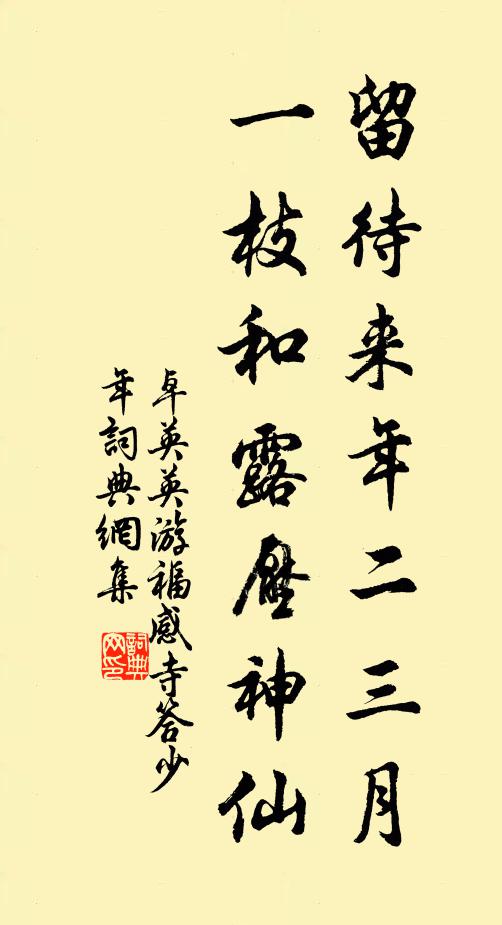 留待来年二三月
一枝和露壓神仙
卓英英游福感寺答少
年詞典網集
詞典網印